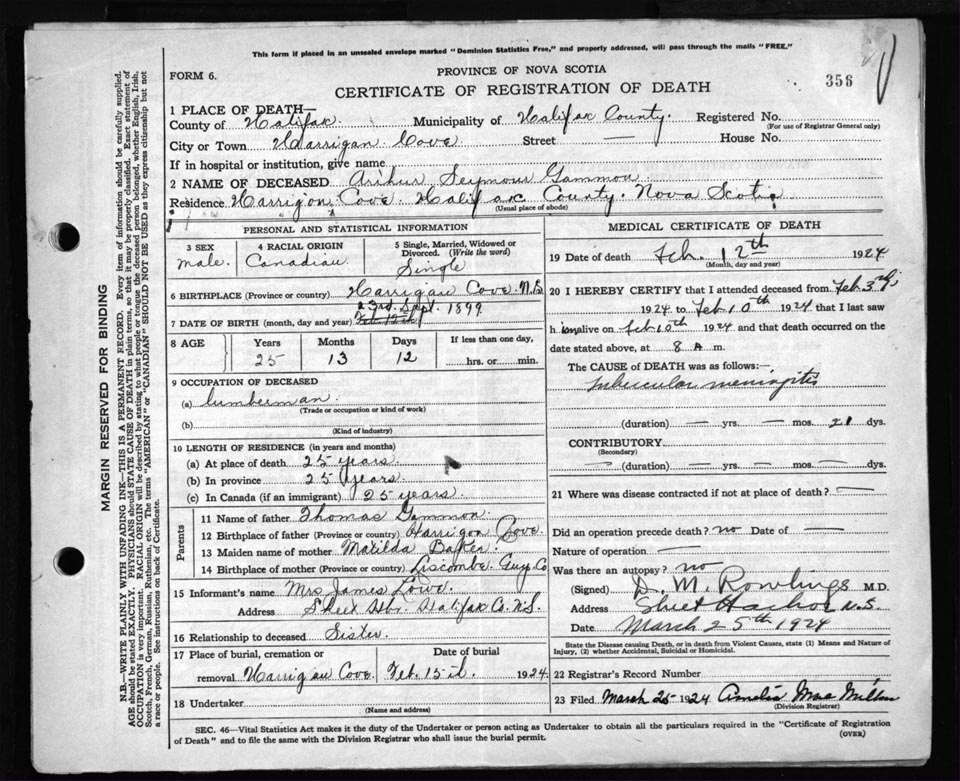 This form if placed in an unsealed envelope marked "Dominion Statistics Free," and properly addressed, will pass through the mails "FREE."
FORM 6.
PROVINCE OF NOVA SCOTIA
358
CERTIFICATE OF REGISTRATION OF DEATH
1 PLACE OF DEATH—
County of Halifax. Municipality of Halifax County. Registered No.
(For use of Registrar General only)
City or Town Harrigan Cove Street — House No.
If in hospital or institution, give name
2 NAME OF DECEASED Arthur Seymour Gammon
Residence Harrigan Cove. Halifax County. Nova Scotia
(Usual place of abode)
PERSONAL AND STATISTICAL INFORMATION
3 SEX
male.
4 RACIAL ORIGIN
Canadian.
5 Single, Married, Widowed or Divorced. (Write the word)
Single
6 BIRTHPLACE (Province or country) Harrigan Cove. N.S.
23rd Sept. 1899
7 DATE OF BIRTH (month, day and year)
8 AGE
Years
25
Months
13
Days
12
If less than one day,
hrs. or min.
9 OCCUPATION OF DECEASED
(a) lumberman
(Trade or occupation or kind of work)
(b)
(Kind of industry)
10 LENGTH OF RESIDENCE (in years and months)
(a) At place of death 25 years.
(b) In province 25 years.
(c) In Canada (if an immigrant) 25 years.
Parents
11 Name of father Thomas Gammon.
12 Birthplace of father (Province or country) Harrigan Cove.
13 Maiden name of mother Matilda Baker.
14 Birthplace of mother (Province or country) Liscombe Guy. Co
15 Informant's name Mrs James Lowe.
Address Sheet Hbr. Halifax Co. N.S.
16 Relationship to deceased Sister.
17 Place of burial, cremation or removal Harrigan Cove.
Date of burial
Feb. 15th. 1924.
18 Undertaker
(Name and address)
MEDICAL CERTIFICATE OF DEATH
19 Date of death Feb. 12th 1924
(Month, day and year)
20 I HEREBY CERTIFY that I attended deceased from Feb 3rd
1924 to Feb 10th 1924 that I last saw
h im alive on Feb 10th 1924 and that death occurred on the
date stated above, at 8 A m.
The CAUSE of DEATH was as follows:—
tubercular meningitis
(duration) — yrs. — mos. 21 dys.
CONTRIBUTORY
(Secondary)
— (duration) — yrs. — mos. — dys.
21 Where was disease contracted if not at place of death? —
Did an operation precede death? no Date of —
Nature of operation —
Was there an autopsy? no
(Signed) D. M. Rowlings M.D.
Address Sheet Harbor N.S.
Date March 25th 1924
State the Disease causing Death, or in death from Violent Causes, state (1) Means and Nature of
Injury, (2) whether Accidental, Suicidal or Homicidal.
22 Registrar's Record Number
23 Filed March 25 1924 Amelia MacMillan
(Division Registrar)
SEC. 46—Vital Statistics Act makes it the duty of the Undertaker or person acting as Undertaker to obtain all the particulars required in the "Certificate of Registration
of Death" and to file the same with the Division Registrar who shall issue the burial permit.
(OVER)
MARGIN RESERVED FOR BINDING
N.B.—WRITE PLAINLY WITH UNFADING INK—THIS IS A PERMANENT RECORD. Every item of information should be carefully supplied.
AGE should be stated EXACTLY. PHYSICIANS should STATE CAUSE OF DEATH in plain terms, so that it may be properly classified. Exact statement of
OCCUPATION is very important. RACIAL ORIGIN will be described by stating to what people or tongue the deceased person belonged, whether English, Irish,
Scotch, French, German, Russian, Ruthenian, etc. The terms "AMERICAN" or "CANADIAN" SHOULD NOT BE USED as they express citizenship but not
a race or people. See instructions on back of Certificate.